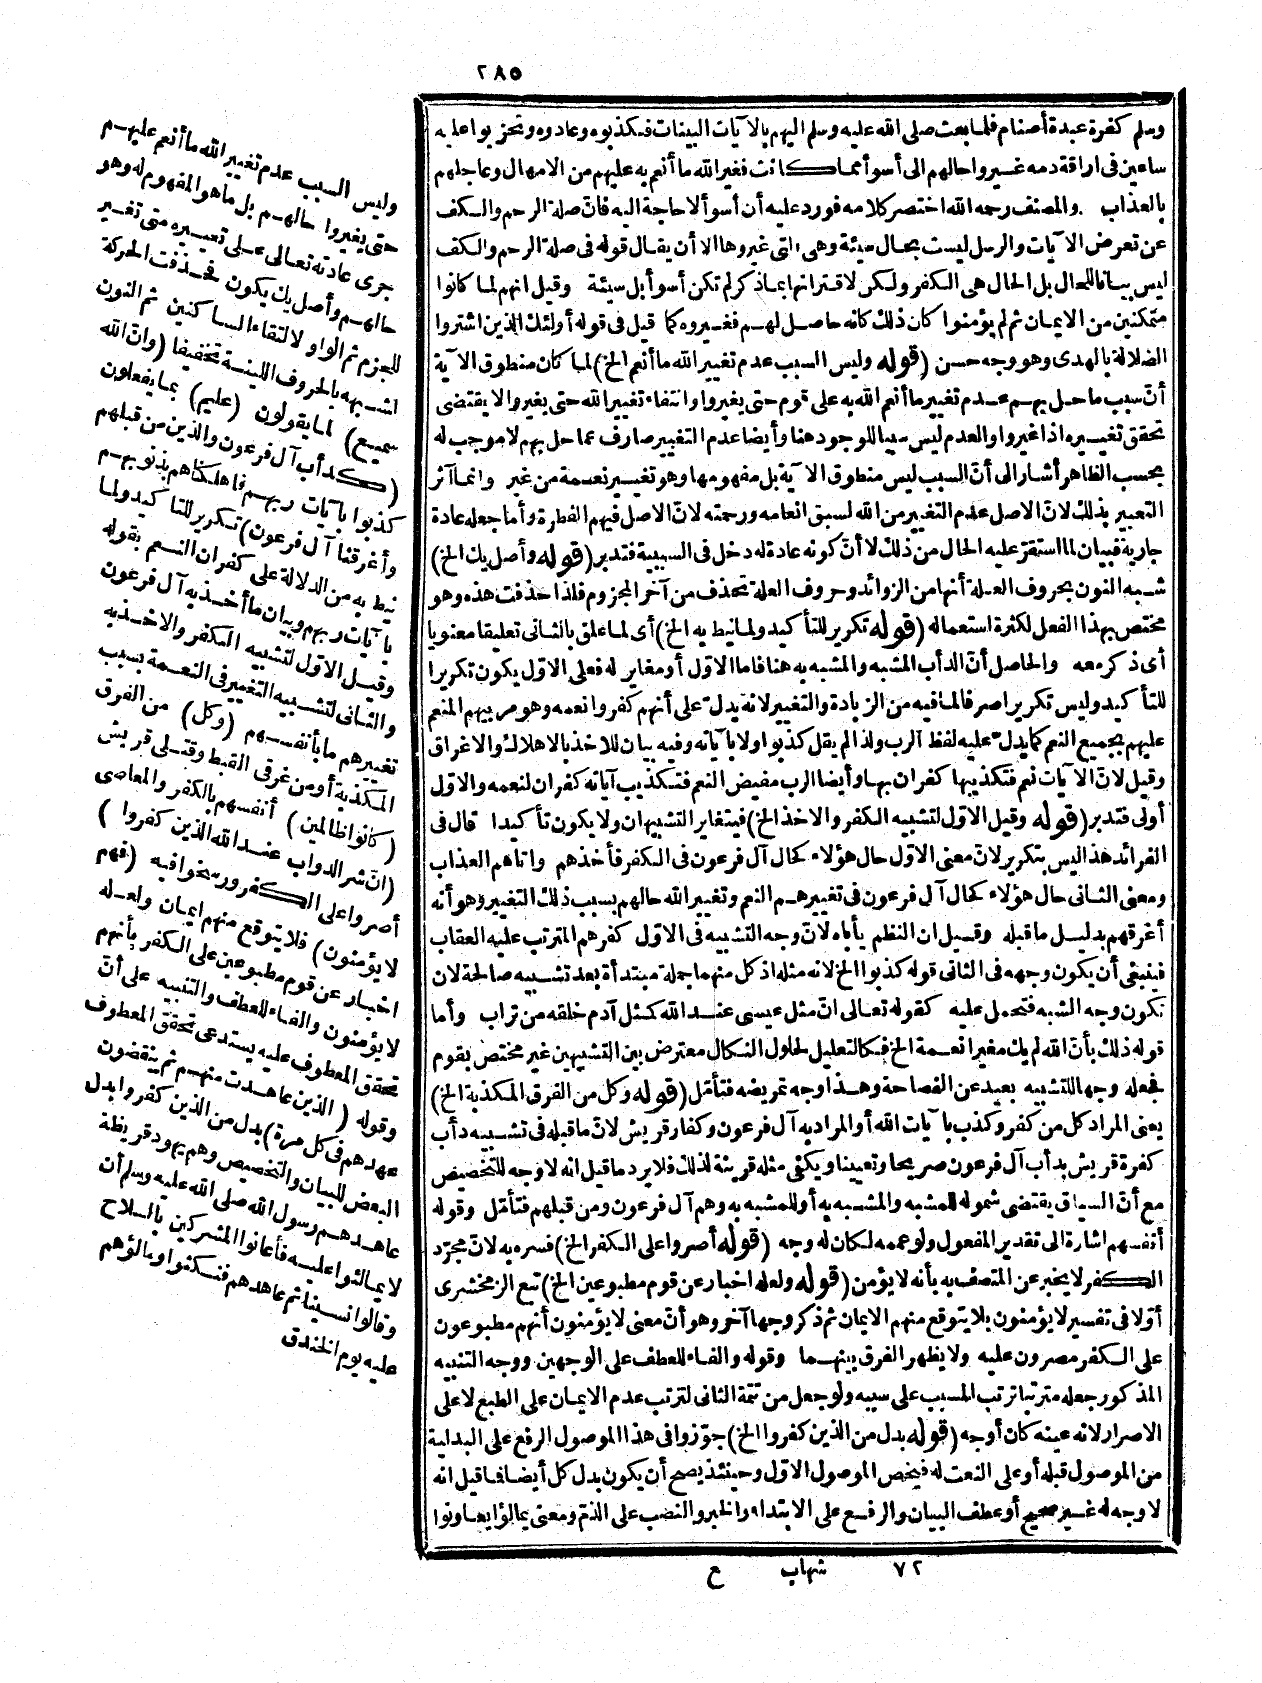 ٢٨٥
وسلم كفرة عبدة أصنام فلما بعث صلى الله عليه وسلم اليهم بالآيات البينات فكذبوه وعادوه وتحزبوا عليه
ساعين فى اراقة دمه غيروا حالهم الى أسوأ مما كانت فغير الله ما أنعم به عليهم من الامهال وعاجلهم
بالعذاب . والمصنف رحمه الله اختصر كلامه فورد عليه أن أسوأ لا حاجة اليه فانّ صلة الرحم والكف
عن تعرض الآيات والرسل ليست بحال سيئة وهى التى غيروها الا أن يقال قوله فى صلة الرحم والكف
ليس بيانا للحال بل الحال هى الكفر ولكن لاقترانها بما ذكر لم تكن أسوأ بل سيئة وقيل انهم لما كانوا
متمكنين من الايمان ثم لم يؤمنوا كان ذلك كانه حاصل لهم فغيروه كما قيل فى قوله أولئك الذين اشتروا
الضلالة بالهدى وهو وجه حسن (قوله وليس السبب عدم تغيير الله ما أنعم الخ) لما كان منطوق الآية
أنّ سبب ما حل بهم عدم تغيير ما أنعم الله به على قوم حتى يغيروا وانتفاء تغيير الله حتى يغيروا لا يقتضى
تحقق تغييره اذا غيروا والعدم ليس سببا للوجود هنا وأيضا عدم التغيير صارف عما حل بهم لا موجب له
بحسب الظاهر أشار الى أنّ السبب ليس منطوق الآية بل مفهومها وهو تغيير نعمة من غير وانما آثر
التعبير بذلك لانّ الاصل عدم التغيير من الله لسبق انعامه ورحمته لانّ الاصل فيهم الفطرة وأما جعله عادة
جارية فبيان لما استقرّ عليه الحال من ذلك لا أنّ كونه عادة له دخل فى السببية فتدبر (قوله وأصل يك الخ)
شبه النون بحروف العلة أنها من الزوائد وحروف العلة تحذف من آخر المجزوم فلذا حذفت هذه وهو
مختص بهذا الفعل لكثرة استعماله (قوله تكرير للتأكيد ولما نيط به الخ) أى لما علق بالثانى تعليقا معنويا
أى ذكر معه والحاصل أنّ الدأب المشبه والمشبه به هنا فاما الاول أو مغاير له فعلى الاول يكون تكريرا
للتأكيد وليس تكريرا صرفا لما فيه من الزيادة والتغيير لانه يدلّ على أنهم كفروا نعمه وهو مربيهم المنعم
عليهم بجميع النعم كما يدلّ عليه لفظ الرب ولذا لم يقل كذبوا ولا بآياته وفيه بيان للاخذ بالاهلاك والاغراق
وقيل لانّ الآيات نعم فتكذيبها كفران بها وأيضا الرب مفيض النعم فتكذيب آياته كفران لنعمه والاول
أولى فتدبر (قوله وقيل الاول لتشبيه الكفر والاخذ الخ) فيتغاير التشبيهان ولا يكون تأكيدا قال فى
الفرائد هذا ليس بتكرير لانّ معنى الاوّل حال هؤلاء كحال آل فرعون فى الكفر فأخذهم واتاهم العذاب
ومعنى الثانى حال هؤلاء كحال آل فرعون فى تغييرهم النعم وتغيير الله حالهم بسبب ذلك التغيير وهو أنه
أغرقهم بدليل ما قبله وقيل ان النظم يأباه لانّ وجه التشبيه فى الاوّل كفرهم المترتب عليه العقاب
فينبغى أن يكون وجهه فى الثانى قوله كذبوا الخ لانه مثله اذ كل منهما جملة مبتدأة بعد تشبيه صالحة لان
تكون وجه الشبه فتحمل عليه كقوله تعالى انّ مثل عيسى عند الله كمثل آدم خلقه من تراب وأما
قوله ذلك بأنّ الله لم يك مغيرا نعمة الخ فكالتعليل لحلول النكال معترض بين التشبيهين غير مختص بقوم
فجعله وجها للتشبيه بعيد عن الفصاحة وهذا وجه تمريضه فتأمّل (قوله وكل من الفرق المكذبة الخ)
يعنى المراد كل من كفر وكذب بآيات الله أو المراد به آل فرعون وكفار قريش لانّ ما قبله فى تشبيه دأب
كفرة قريش بدأب آل فرعون صريحا وتعيينا ويكفى مثله قرينة لذلك فلا يرد ما قيل انه لا وجه للتخصيص
مع أنّ السياق يقتضى شموله للمشبه والمشبه به أو للمشبه به وهم آل فرعون ومن قبلهم فتأمّل وقوله
أنفسهم اشارة الى تقدير المفعول ولو عممه لكان له وجه (قوله أصروا على الكفر الخ) فسره به لانّ مجرّد
الكفر لا يخبر عن المتصف به بأنه لا يؤمن (قوله ولعله اخبار عن قوم مطبوعين الخ) تبع الزمخشرى
أوّلا فى تفسير لا يؤمنون بلا يتوقع منهم الايمان ثم ذكر وجها آخر وهو أنّ معنى لا يؤمنون أنهم مطبوعون
على الكفر مصرون عليه ولا يظهر الفرق بينهما وقوله والفاء للعطف على الوجهين ووجه التنبيه
المذكور جعله مترتبا ترتب المسبب على سببه ولو جعل من تتمة الثانى لترتب عدم الايمان على الطبع لا على
الاصرار لانه عينه كان أوجه (قوله بدل من الذين كفروا الخ) جوّزوا فى هذا الموصول الرفع على البدلية
من الموصول قبله أو على النعت له فيخص الموصول الاوّل وحينئذ يصح أن يكون بدل كل أيضا فما قيل انه
لا وجه له غير صحيح أو عطف البيان والرفع على الابتداء والخبر والنصب على الذمّ ومعنى يمالؤا يعاونوا
وليس السبب عدم تغيير الله ما أنعم عليهم
حتى يغيروا حالهم بل ما هو المفهوم له وهو
جرى عادته تعالى على تغييره متى تغير
حالهم وأصل يك يكون فحذفت الحركة
للجزم ثم الواو لالتقاء الساكنين ثم النون
لشبهه بالحروف اللينة تخفيفا (وانّ الله
سميع) لما يقولون (عليم) بما يفعلون
(كدأب آل فرعون والذين من قبلهم
كذبوا بآيات ربهم فأهلكناهم بذنوبهم
وأغرقنا آل فرعون) تكرير للتأكيد ولما
نيط به من الدلالة على كفران النعم بقوله
بآيات ربهم وبيان ما أخذ به آل فرعون
وقيل الاوّل لتشبيه الكفر والاخذ به
والثانى لتشبيه التغيير فى النعمة بسبب
تغييرهم ما بأنفسهم (وكل) من الفرق
المكذبة أو من غرقى القبط وقتلى قريش
(كانوا ظالمين) أنفسهم بالكفر والمعاصى
(انّ شر الدواب عند الله الذين كفروا)
أصروا على الكفر ورسخوا فيه (فهم
لا يؤمنون) فلا يتوقع منهم ايمان ولعله
اخبار عن قوم مطبوعين على الكفر بأنهم
لا يؤمنون والفاء للعطف والتنبيه على أنّ
تحقق المعطوف عليه يستدعى تحقق المعطوف
وقوله (الذين عاهدت منهم ثم ينقضون
عهدهم فى كل مرة) بدل من الذين كفروا بدل
البعض للبيان والتخصيص وهم يهود قريظة
عاهدهم رسول الله صلى الله عليه وسلم أن
لا يمالئوا عليه فأعانوا المشركين بالسلاح
وقالوا نسينا ثم عاهدهم فنكثوا ومالؤهم
عليه يوم الخندق
٧٢ شهاب ع